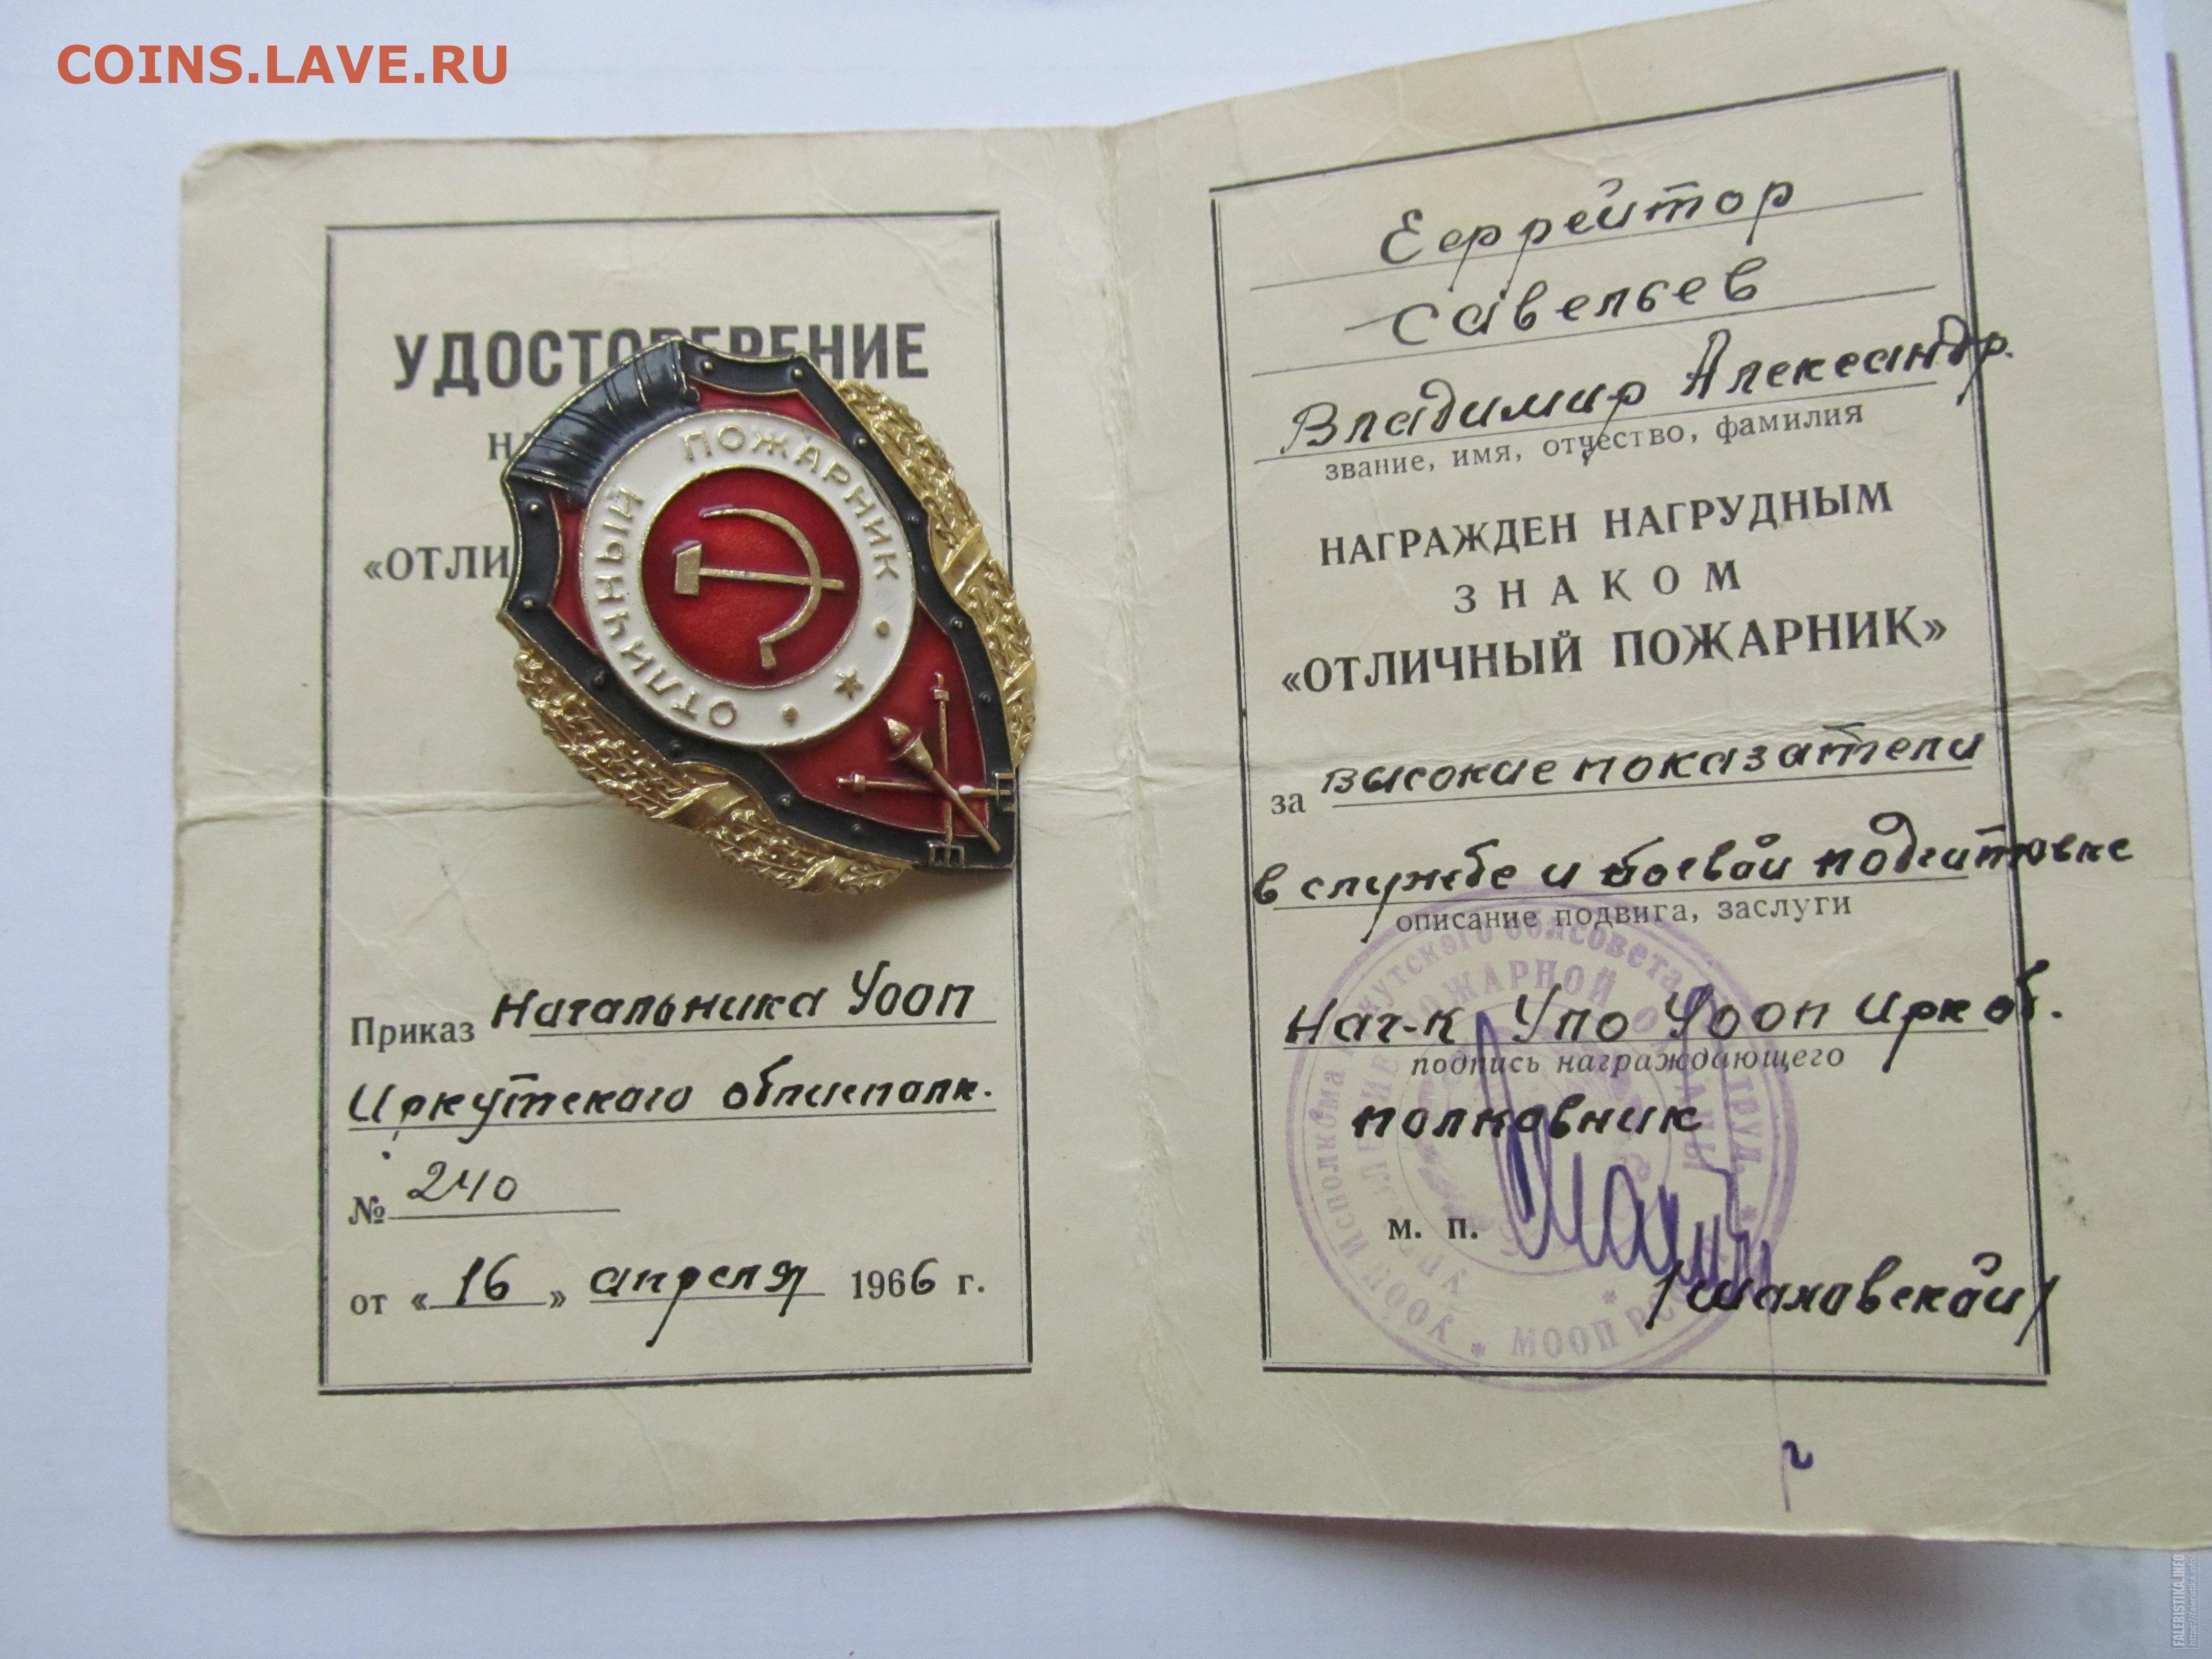 COINS.LAVE.RU
УДОСТОВЕРЕНИЕ
«ОТЛИ
ОТЛИЧНЫЙ ПОЖАРНИК
Приказ Начальника УООП
Иркутского облисполк.
№ 240
от «16» апреля 1966 г.
Ефрейтор
Савельев
Владимир Александр.
звание, имя, отчество, фамилия
НАГРАЖДЕН НАГРУДНЫМ
ЗНАКОМ
«ОТЛИЧНЫЙ ПОЖАРНИК»
за высокие показатели
в службе и боевой подготовке
описание подвига, заслуги
Нач-к УПО УООП Ирк об.
подпись награждающего
полковник
м. п.
УООП Исполкома Иркутского облсовета
ПОЖАРНОЙ
МООП РСФСР
FALERISTIKA.INFO